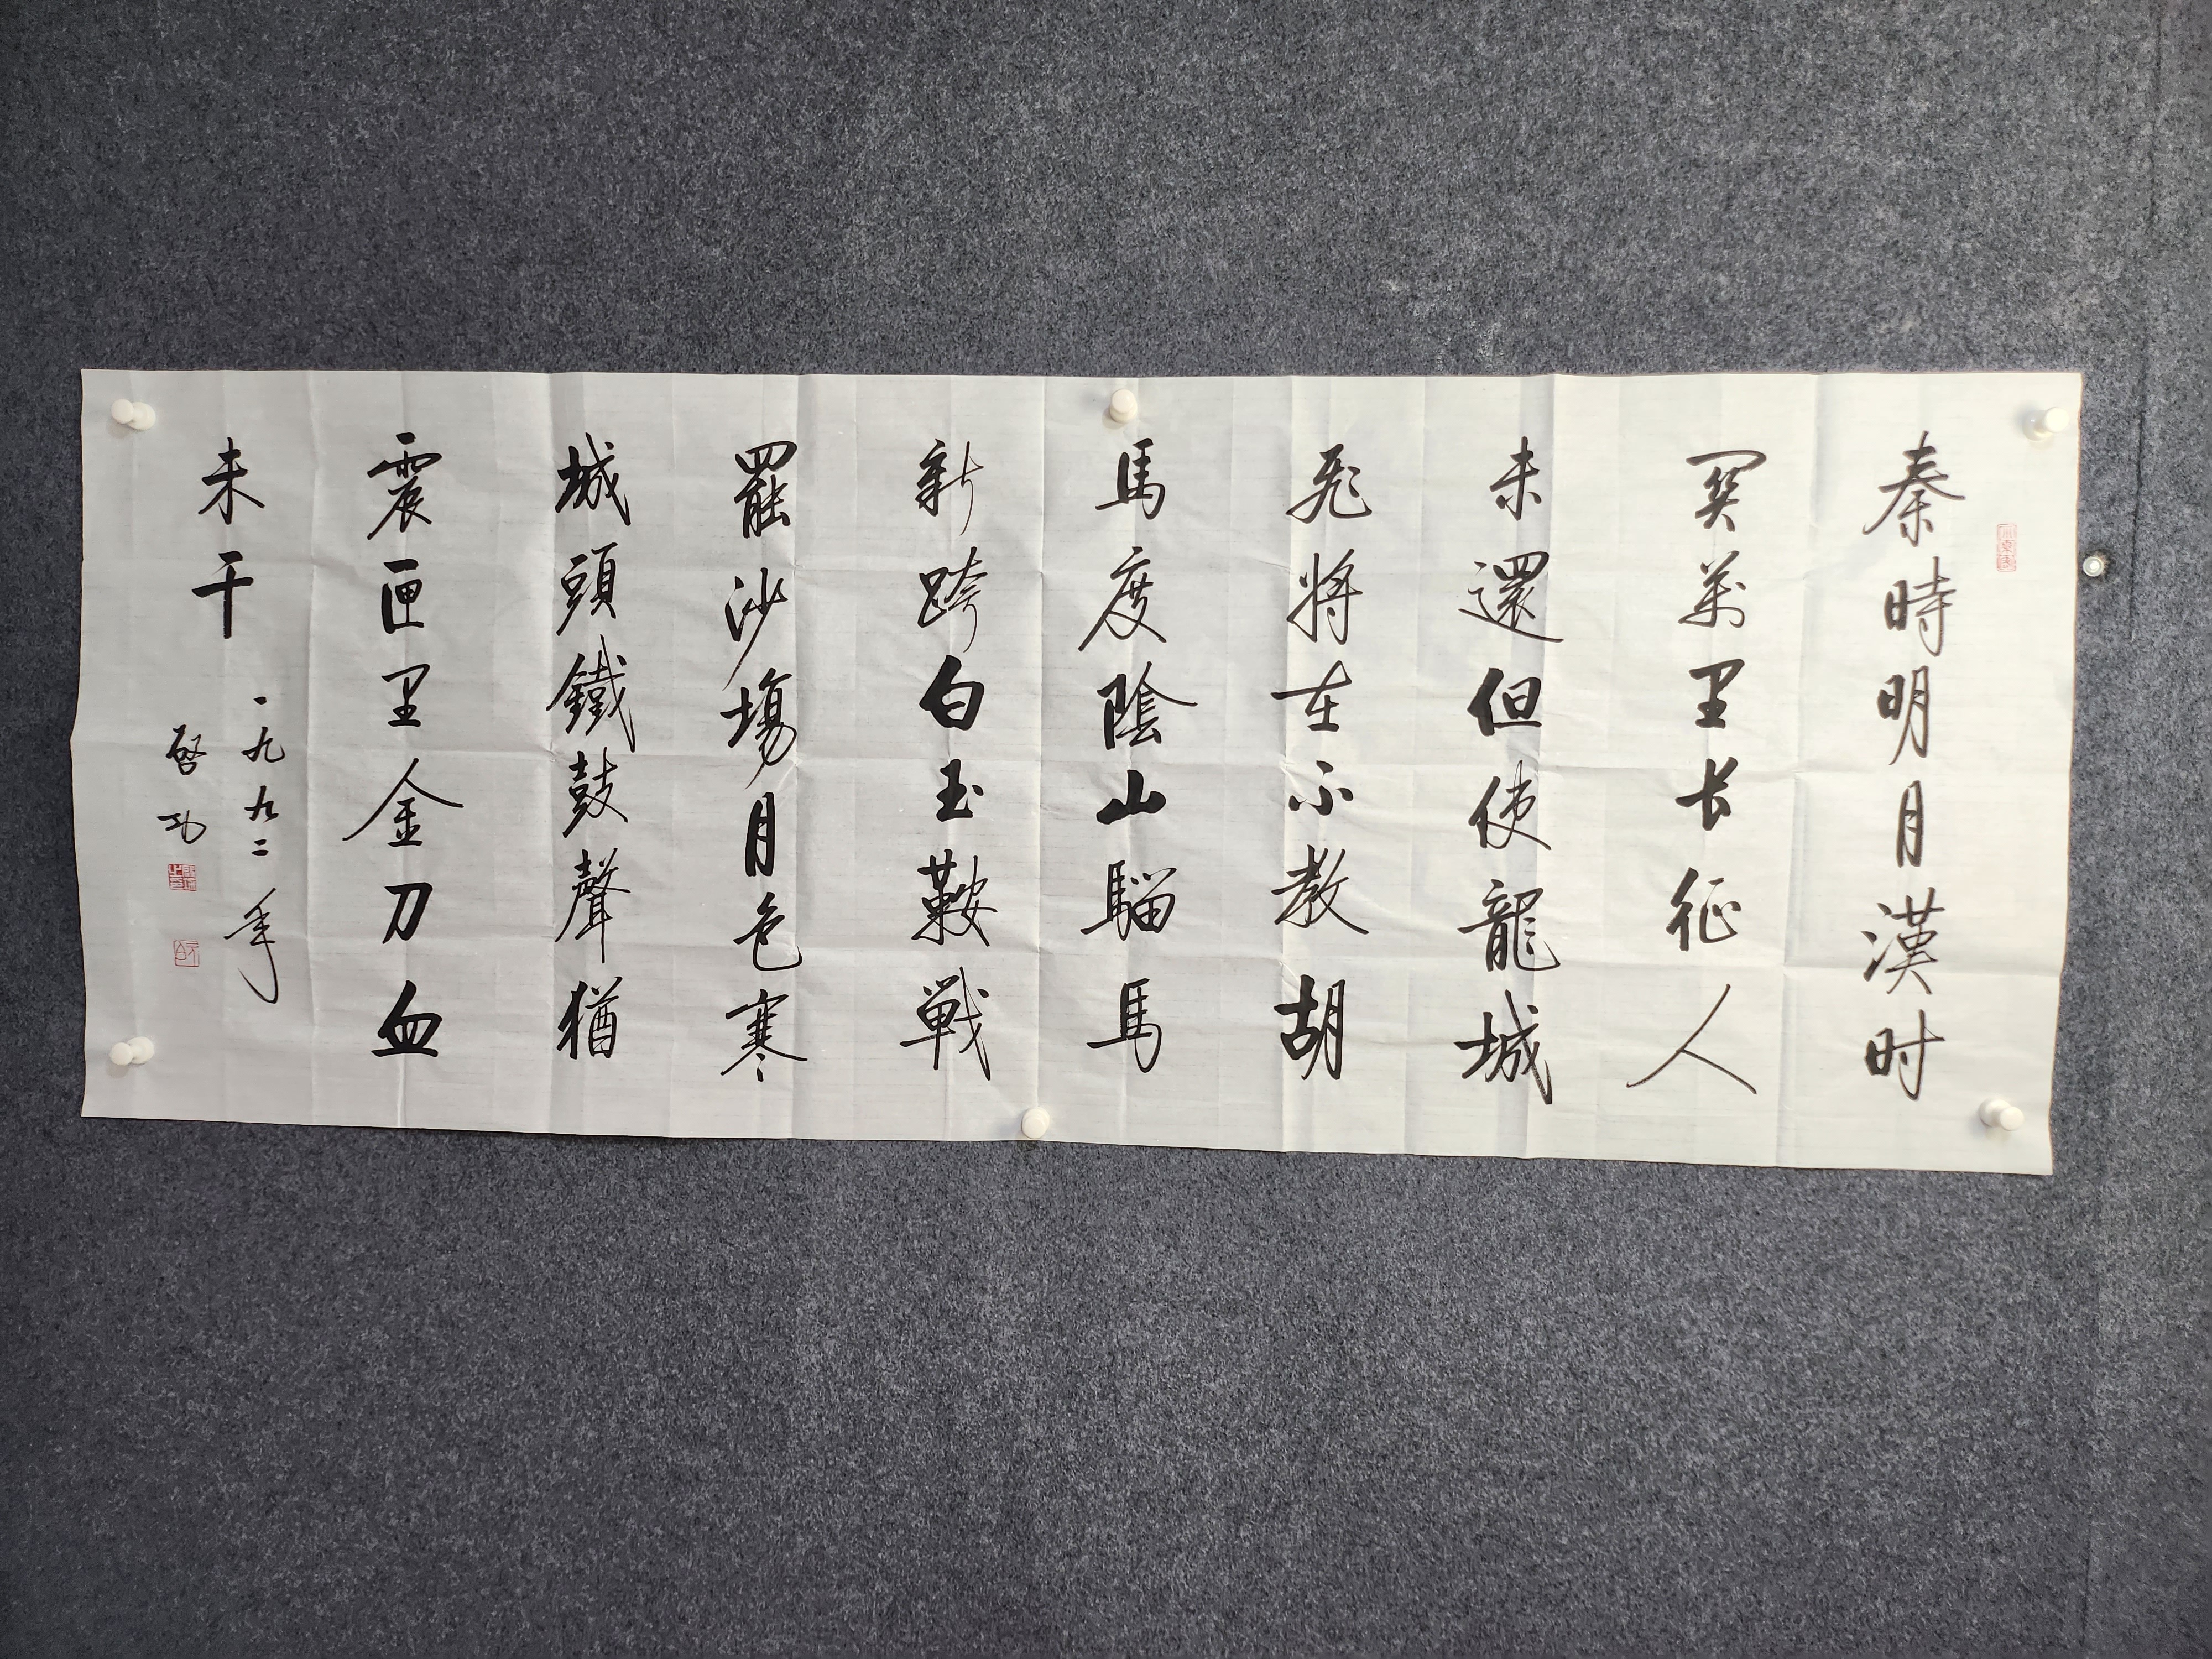 秦時明月漢时
関萬里长征人
未還但使龍城
飛将在不教胡
馬度陰山騮馬
新跨白玉鞍戦
罷沙場月色寒
城頭鐵鼓聲猶
震匣里金刀血
未干
一九九二年
啓功